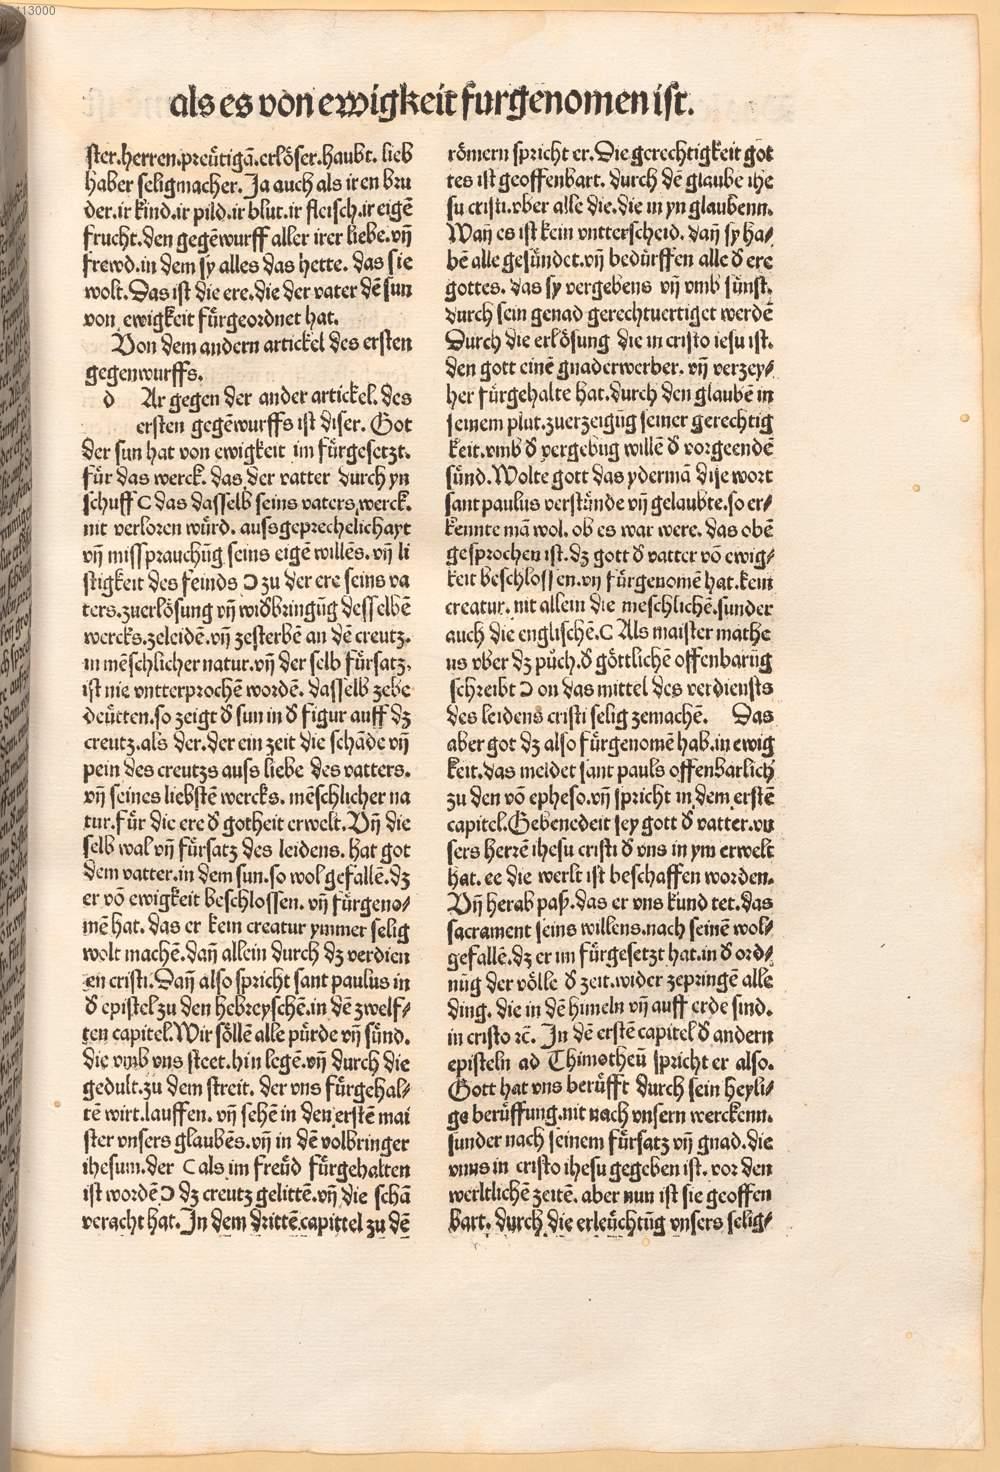 als es von ewigkeit furgenomen ist.
ster.herren.preu̎tigā.erlöser.haubt. lieb
haber seligmacher. Ja auch als iren bru
der.ir kind.ir pild.ir blut.ir fleisch.ir eigē
frucht.den gegēwurff aller irer liebe.vn̄
frewd.in dem sy alles das hette. das sie
wolt.Das ist die ere.die der vater dē sun
von ewigkeit fu̎rgeordnet hat.
Von dem andern artickel des ersten
gegenwurffs.
d Ar gegen der ander artickel. des
ersten gegēwurffs ist diser. Got
der sun hat von ewigkeit im fu̎rgesetzt.
fu̎r das werck. das der vatter durch yn
schuff ⊂ das dasselb seins vaters werck.
nit verloren wu̎rd. aussgeprechelichayt
vn̄ missprauchūg seins eigē willēs. vn̄ li
stigkeit des feinds ⊃ zu der ere seins va
ters.zuerlösung vn̄ wiđbringūg desselbē
wercks.zeleidē.vn̄ zesterbē an dē creutz.
in mēschlicher natur.vn̄ der selb fu̎rsatz.
ist nie vntterprochē wordē. dasselb zebe
deu̎tten.so zeigt đ sun in đ figur auff dz
creutz.als der.der ein zeit die schāde vn̄
pein des creutzs auss liebe des vatters.
vn̄ seines liebstē wercks. mēschlicher na
tur.fu̎r die ere đ gotheit erwelt.Vn̄ die
selb wal vn̄ fu̎rsatz des leidens. hat got
dem vatter.in dem sun.so wol gefallē.dz
er vō ewigkeit beschlossen. vn̄ fu̎rgeno⸗
mē hat. das er kein creatur ymmer selig
wolt machē.dan̄ allein durch dz verdien
en cristi.Dan̄ also spricht sant paulus in
đ epistel zu den hebreyschē.in dē zwelf⸗
ten capitel.Wir söllē alle pu̎rde vn̄ su̎nd.
die vmb vns steet.hin legē.vn̄ durch die
gedult.zu dem streit. der vns fu̎rgehal⸗
tē wirt.lauffen. vn̄ sehē in den erstē mai
ster vnsers glaubēs.vn̄ in dē volbringer
ihesum.der ⊂ als im freu̎d fu̎rgehalten
ist wordē ⊃ dz creutz gelittē.vn̄ die schā
veracht hat.In dem drittē.capittel zu dē
römern spricht er.Die gerechtigkeit got
tes ist geoffenbart. durch dē glaube ihe
su cristi.vber alle die.die in yn glaubenn.
Wan̄ es ist kein vntterscheid. dan̄ sy ha⸗
bē alle gesu̎ndet.vn̄ bedu̎rffen alle đ ere
gottes. das sy vergebens vn̄ vmb su̎nst.
durch sein genad gerechtuertiget werdē
Durch die erlösung die in cristo iesu ist.
den gott einē gnaderwerber. vn̄ verzey⸗
her fu̎rgehalte hat.durch den glaubē in
seinem plut.zuerzeigūg seiner gerechtig
keit.vmb đ vergebūg willē đ vorgeendē
su̎nd.Wolte gott das ydermā dise wort
sant paulus verstu̎nde vn̄ gelaubte.so er⸗
kennte mā wol. ob es war were. das obē
gesprochen ist.dz gott đ vatter vō ewig⸗
keit beschlossen.vn̄ fu̎rgenomē hat.kein
creatur. nit allein die meschlichē.sunder
auch die englischē.⊂ Als maister mathe
us vber dz pu̎ch.đ göttlichē offenbarūg
schreibt ⊃ on das mittel des verdiensts
des leidens cristi selig zemachē. Das
aber got dz also fu̎rgenomē hab.in ewig
keit.das meldet sant pauls offenbarlich
zu den vō epheso.vn̄ spricht in dem erstē
capitel.Gebenedeit sey gott đ vatter.vn
sers herrē ihesu cristi đ vns in ym erwelt
hat. ee die werlt ist beschaffen worden.
Vn̄ herab paß.das er vns kund tet.das
sacrament seins willens.nach seinē wol⸗
gefallē.dz er im fu̎rgesetzt hat.in đ ord⸗
nūg der völle đ zeit.wider zepringē alle
ding. die in dē himeln vn̄ auff erde sind.
in cristo ꝛc̄. In dē erstē capitel đ andern
episteln ad Thimotheū spricht er also.
Gott hat vns beru̎fft durch sein heyli⸗
ge beru̎ffung.nit nach vnsern werckenn.
sunder nach seinem fu̎rsatz vn̄ gnad.die
vnns in cristo ihesu gegeben ist. vor den
werltlichē zeitē. aber nun ist sie geoffen
bart. durch die erleu̎chtūg vnsers selig⸗